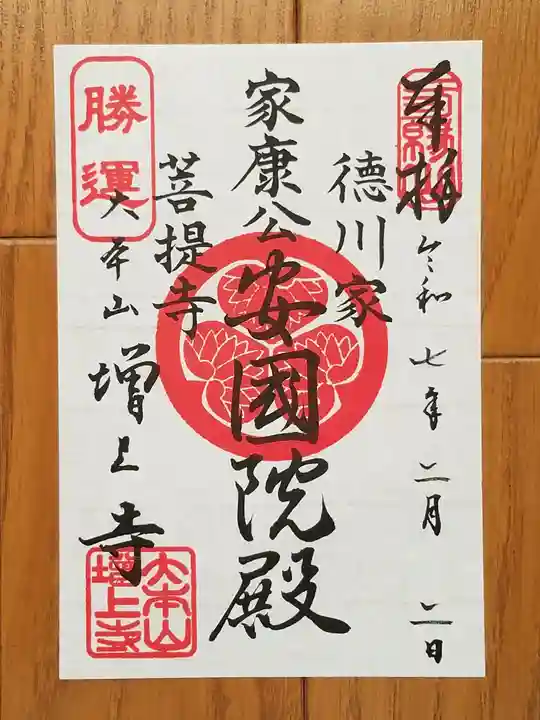 奉拝
令和七年二月二日
徳川家
家康公安國院殿
菩提寺
勝運
大本山増上寺
大本山
増上寺